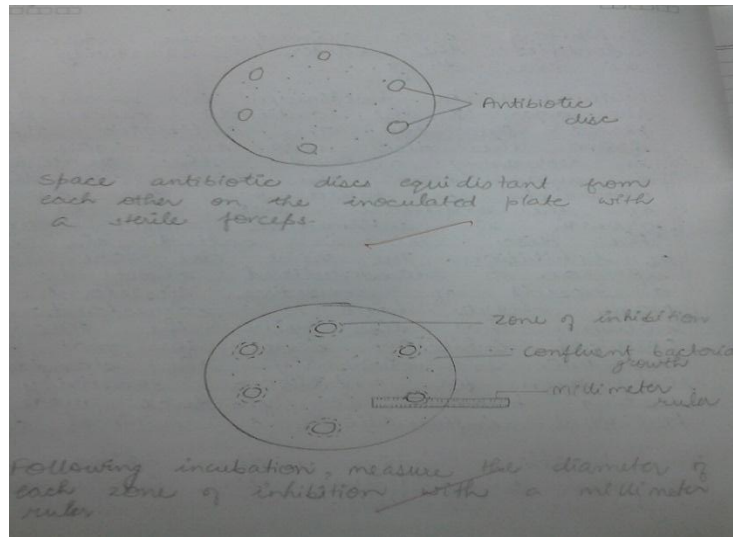 Antibiotic
disc
Space antibiotic discs equidistant from
each other on the inoculated plate with
a sterile forceps.
zone of inhibition
confluent bacteria
growth
millimeter
ruler
Following incubation, measure the diameter of
each zone of inhibition with a millimeter
ruler